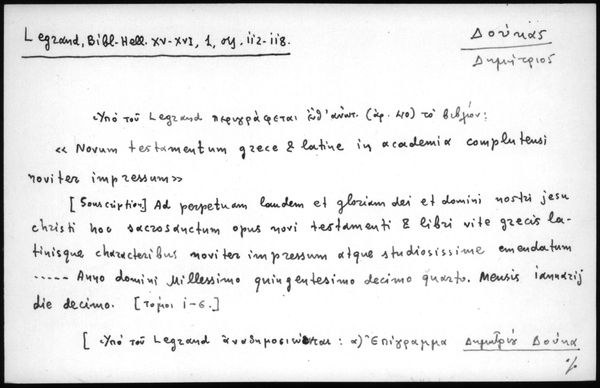 Legrand, Bibl. Hell. XV-XVI, 1, σσ. 112-118.
Δούκας
Δημήτριος
Ὑπὸ τοῦ Legrand περιγράφεται ἔνθ' ἀνωτ. (ἀρ. 40) τὸ βιβλίον:
« Novum testamentum grece & latine in academia complutensi
noviter impressum»
[Souscription] Ad perpetuam laudem et gloriam dei et domini nostri jesu
christi hoc sacrosanctum opus novi testamenti & libri vite grecis la-
tinisque characteribus noviter impressum atque studiosissime emendatum
..... Anno domini Millessimo quingentesimo decimo quarto. Mensis ianuarij
die decimo. [τόμοι 1-6.]
[Ὑπὸ τοῦ Legrand ἀναδημοσιεύεται: α) Ἐπίγραμμα Δημητρίου Δούκα